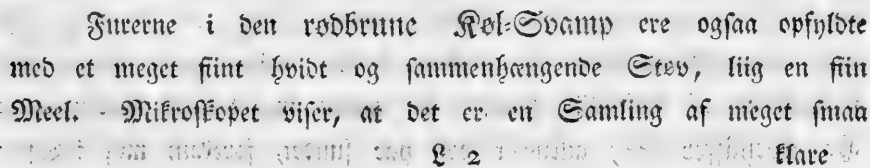 Furerne i den rødbrune Køl-Svamp ere ogsaa opfyldte
med et meget fiint hvidt og sammenhængende Støv, liig en fiin
Meel. Mikroskopet viser, at det er en Samling af meget smaa
L 2 klare